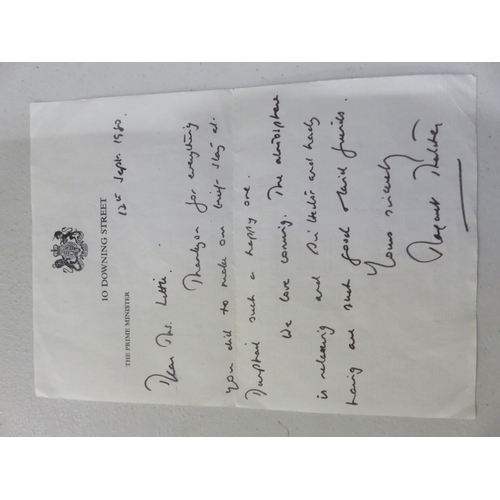 10 DOWNING STREET
THE PRIME MINISTER
12th Sept. 1980.
Dear Mrs. Little.
Thankyou for everything
you did to make our brief stay at
such a happy one.
We love coming. The atmosphere
is relaxing and Sir Hector and Lady
are such good & kind friends.
Yours sincerely
Margaret Thatcher